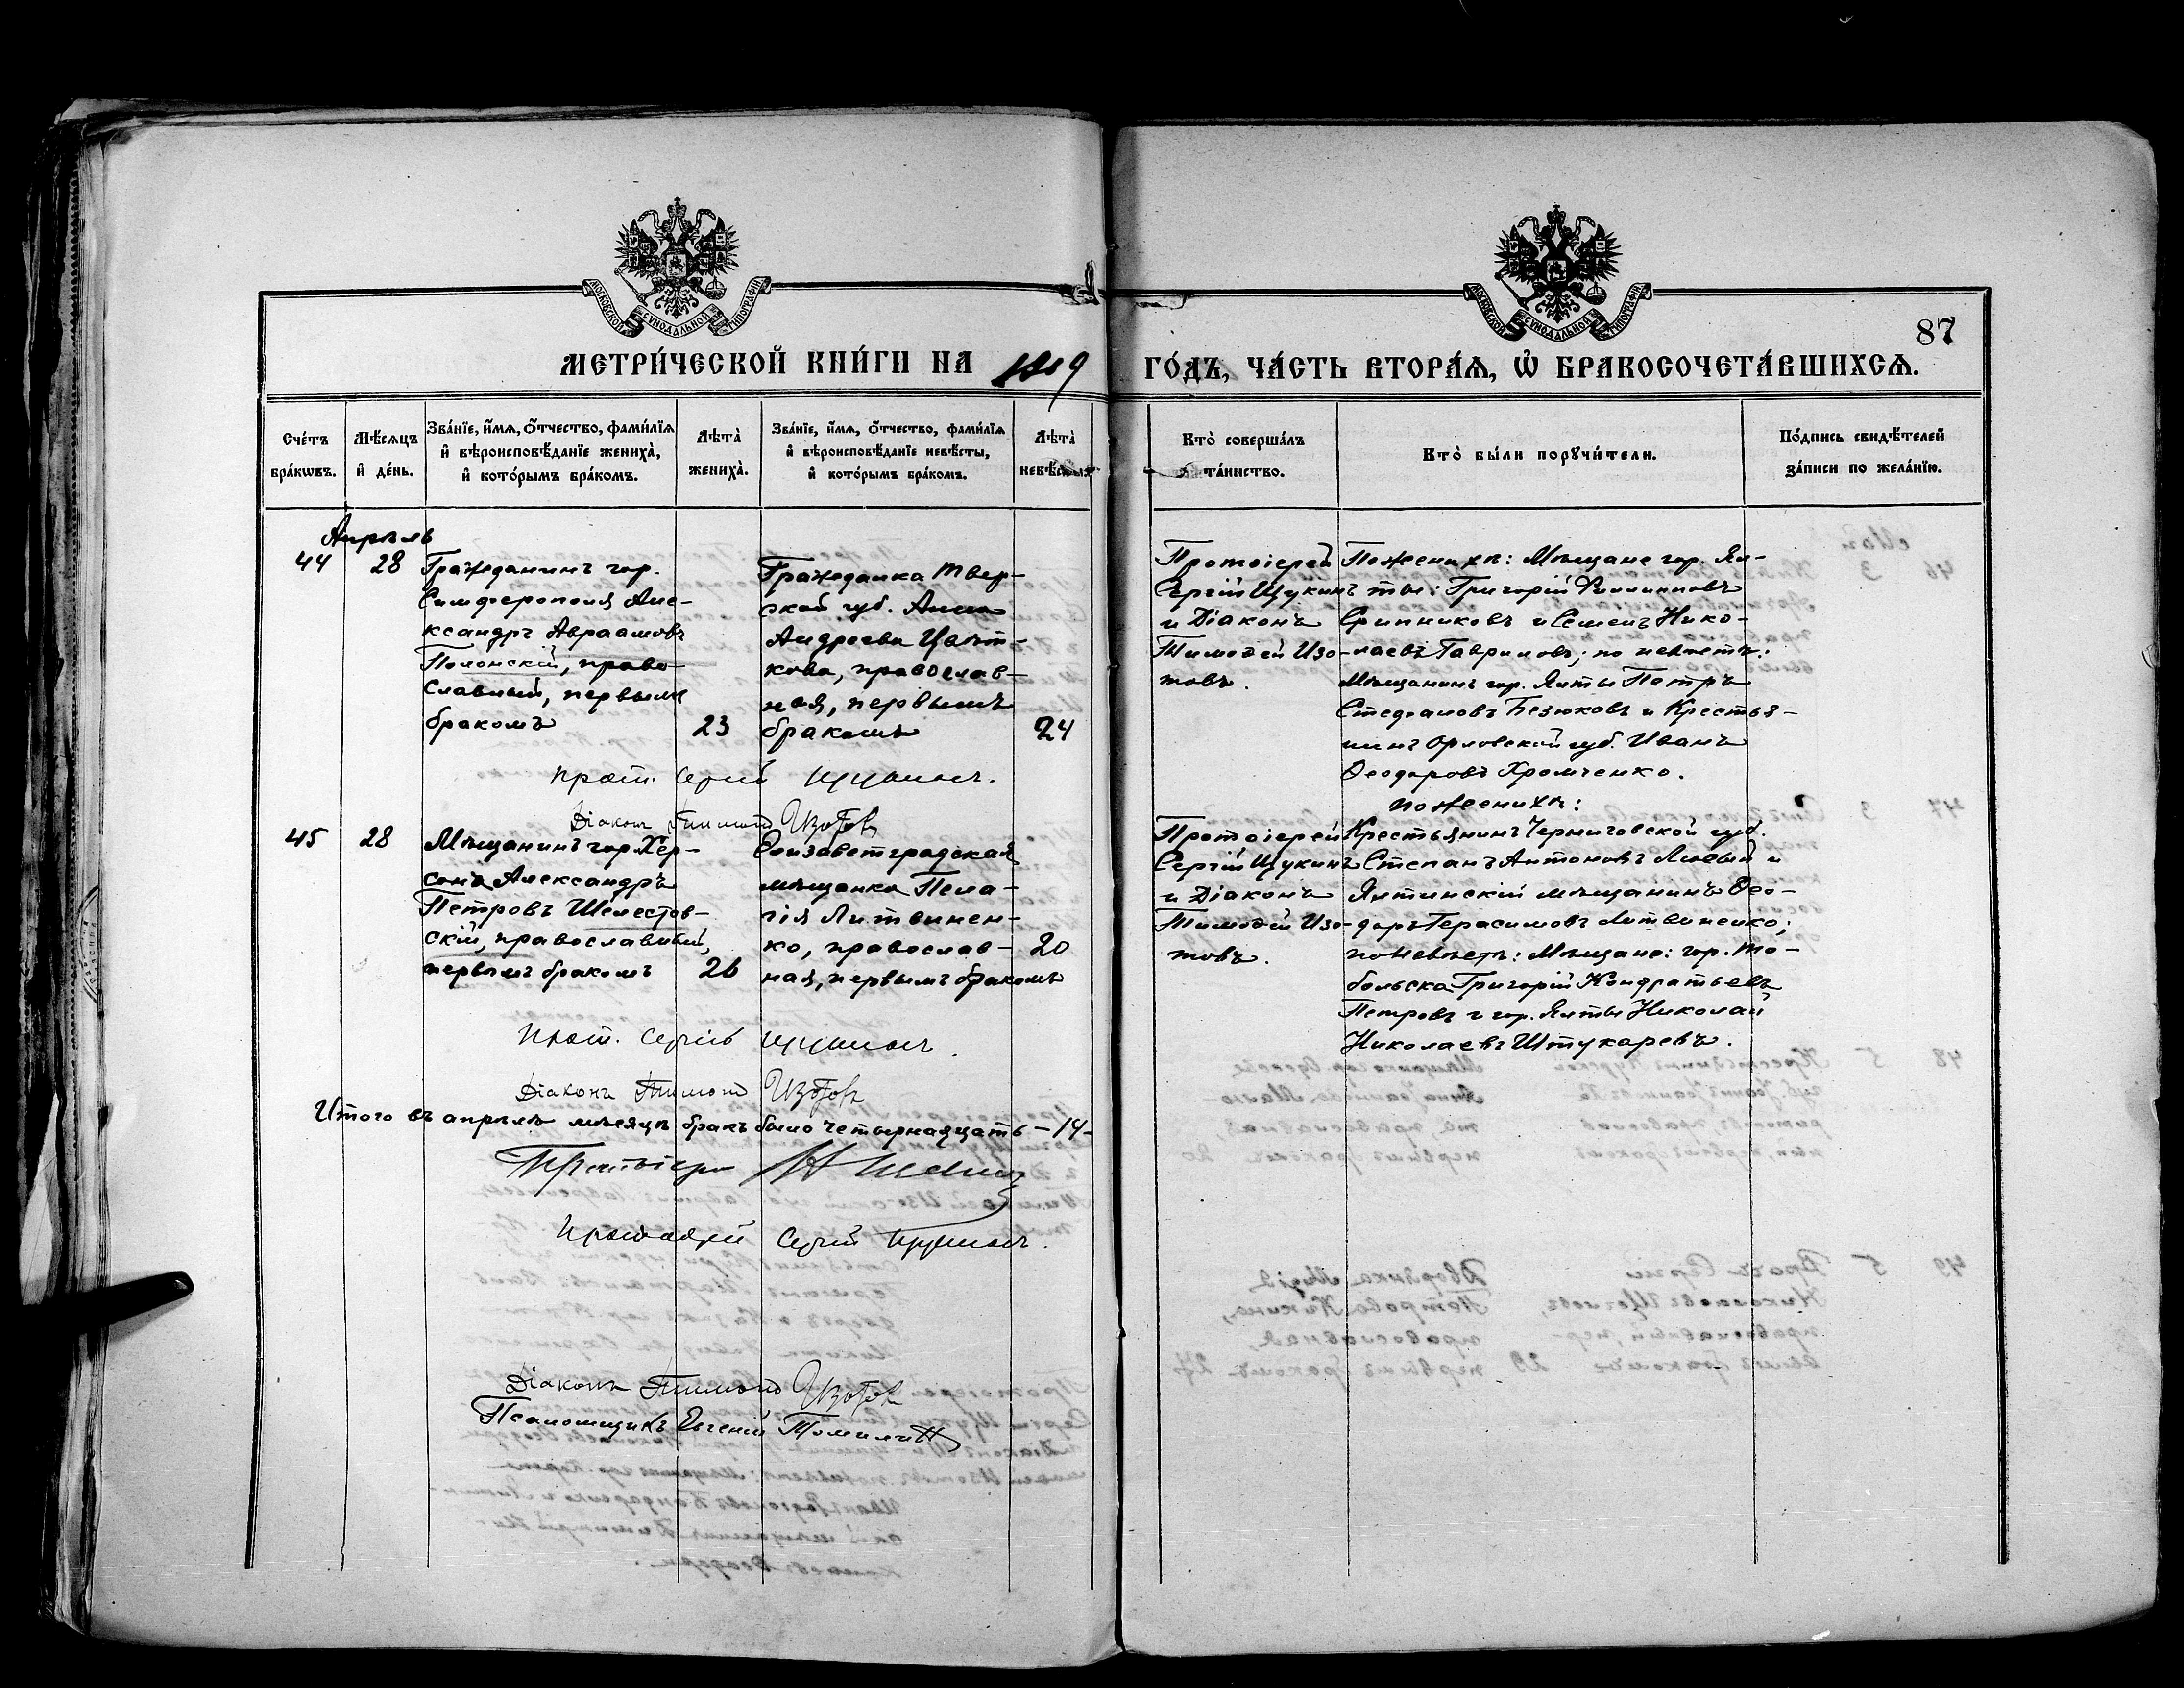 МОСКОВСКОЙ СѴНОДАЛЬНОЙ ТИПОГРАФІИ
МОСКОВСКОЙ СѴНОДАЛЬНОЙ ТИПОГРАФІИ
87
МЕТРИ́ЧЕСКОЙ КНИ́ГИ НА 1919 ГО́ДЪ, ЧА́СТЬ ВТОРА́Ѧ, Ѽ БРАКОСОЧЕТА́ВШИХСѦ.
Сче́тъ бра́кѡвъ.
Мѣ́сѧцъ и҆ де́нь.
Зва́нїе, и҆́мѧ, о҆́тчество, фами́лїѧ и҆ вѣроисповѣ́данїе жениха̀, и҆ кото́рымъ бра́комъ.
Лѣта̀ жениха̀.
Зва́нїе, и҆́мѧ, о҆́тчество, фами́лїѧ и҆ вѣроисповѣ́данїе невѣ́сты, и҆ кото́рымъ бра́комъ.
Лѣта̀ невѣ́сты.
Кто̀ соверша́лъ та́инство.
Кто̀ бы́ли порꙋчи́тели.
По́дпись свидѣ́телей за́писи по жела́нїю.
Апрѣль
44
28
Гражданинъ гор.
Симферополя Але-
ксандръ Авраамовъ
Полонскій, право-
славный, первымъ
бракомъ
23
Гражданка Твер-
ской губ. Анна
Андреева Цвѣт-
кова, православ-
ная, первымъ
бракомъ
24
Протоіерей
Сергій Щукинъ
и Діаконъ
Тимоѳей Изо-
товъ.
По женихѣ: Мѣщане гор. Ял-
ты: Григорій Филипповъ
Скрипниковъ и Семенъ Нико-
лаевъ Гавриловъ; по невѣстѣ:
Мѣщанинъ гор. Ялты Петръ
Стефановъ Безюковъ и Крестья-
нинъ Орловской губ. Иванъ
Ѳеодоровъ Хромченко.
Прот. Сергій Щукинъ.
Діаконъ Тимоѳей Изотовъ
45
28
Мѣщанинъ гор. Хер-
сона Александръ
Петровъ Шелестов-
скій, православный,
первымъ бракомъ
26
Елизаветградская
мѣщанка Пела-
гія Литвинен-
ко, православ-
ная, первымъ бракомъ
20
Протоіерей
Сергій Щукинъ
и Діаконъ
Тимоѳей Изо-
товъ.
по женихѣ:
Крестьянинъ Черниговской губ.
Степанъ Антоновъ и
Ялтинскій мѣщанинъ Ѳео-
доръ Герасимовъ Литвиненко;
по невѣстѣ: Мѣщане: гор. То-
больска Григорій Кондратьевъ
Петровъ и гор. Ялты Николай
Николаевъ Штукаревъ.
Прот. Сергій Щукинъ.
Діаконъ Тимоѳей Изотовъ
Итого въ апрѣлѣ мѣсяцѣ бракъ было четырнадцать -14-
Протоіерей
Протоіерей Сергій Щукинъ.
Діаконъ Тимоѳей Изотовъ
Псаломщикъ Евгеній Томилинъ